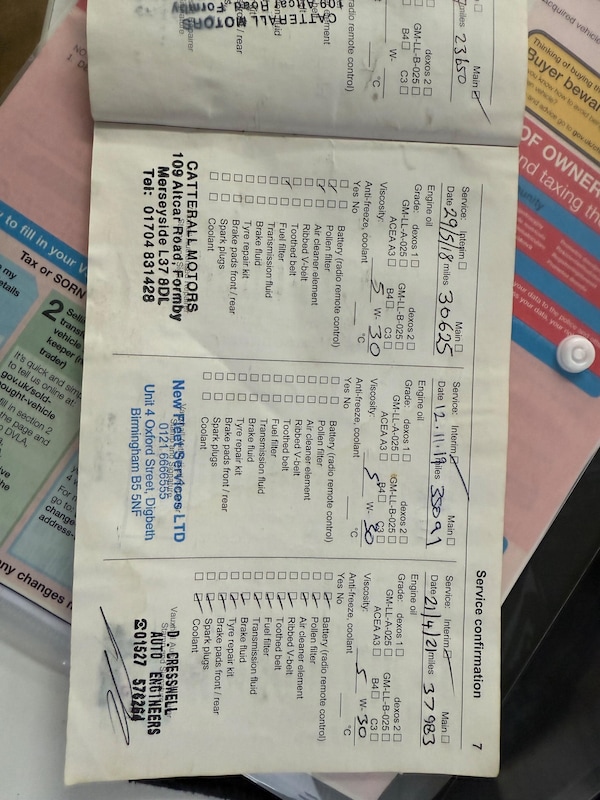 Service confirmation
7
Main
miles 23650
dexos 2
GM-LL-B-025
B4 C3
W- °C
radio remote control)
Service: Interim Main
Date 29/5/18 miles 30625
Engine oil
Grade: dexos 1 dexos 2
GM-LL-A-025 GM-LL-B-025
ACEA A3 B4 C3
Viscosity: 5 W- 30
Anti-freeze, coolant °C
Yes No
Battery (radio remote control)
Pollen filter
Air cleaner element
Ribbed V-belt
Toothed belt
Fuel filter
Transmission fluid
Brake fluid
Tyre repair kit
Brake pads front / rear
Spark plugs
Coolant
CATTERALL MOTORS
109 Altcar Road, Formby
Merseyside L37 8DL
Tel: 01704 831428
Service: Interim Main
Date 12.11.19 miles 35091
Engine oil
Grade: dexos 1 dexos 2
GM-LL-A-025 GM-LL-B-025
ACEA A3 B4 C3
Viscosity: 5 W- 30
Anti-freeze, coolant °C
Yes No
Battery (radio remote control)
Pollen filter
Air cleaner element
Ribbed V-belt
Toothed belt
Fuel filter
Transmission fluid
Brake fluid
Tyre repair kit
Brake pads front / rear
Spark plugs
Coolant
New Fleet Services LTD
0121 6665555
Unit 4 Oxford Street, Digbeth
Birmingham B5 5NF
Service: Interim Main
Date 21/4/21 miles 37983
Engine oil
Grade: dexos 1 dexos 2
GM-LL-A-025 GM-LL-B-025
ACEA A3 B4 C3
Viscosity: 5 W- 30
Anti-freeze, coolant °C
Yes No
Battery (radio remote control)
Pollen filter
Air cleaner element
Ribbed V-belt
Toothed belt
Fuel filter
Transmission fluid
Brake fluid
Tyre repair kit
Brake pads front / rear
Spark plugs
Coolant
D. CRESSWELL
AUTO ENGINEERS
01527 576264
acquired vehicle
Thinking of buying
Buyer bewar
OF OWNER
nd taxing the
to fill in your
Tax or SORN
2
It's quick and simp
to tell us online at
gov.uk/sold-
ought-vehicle
fill in section 2
any changes